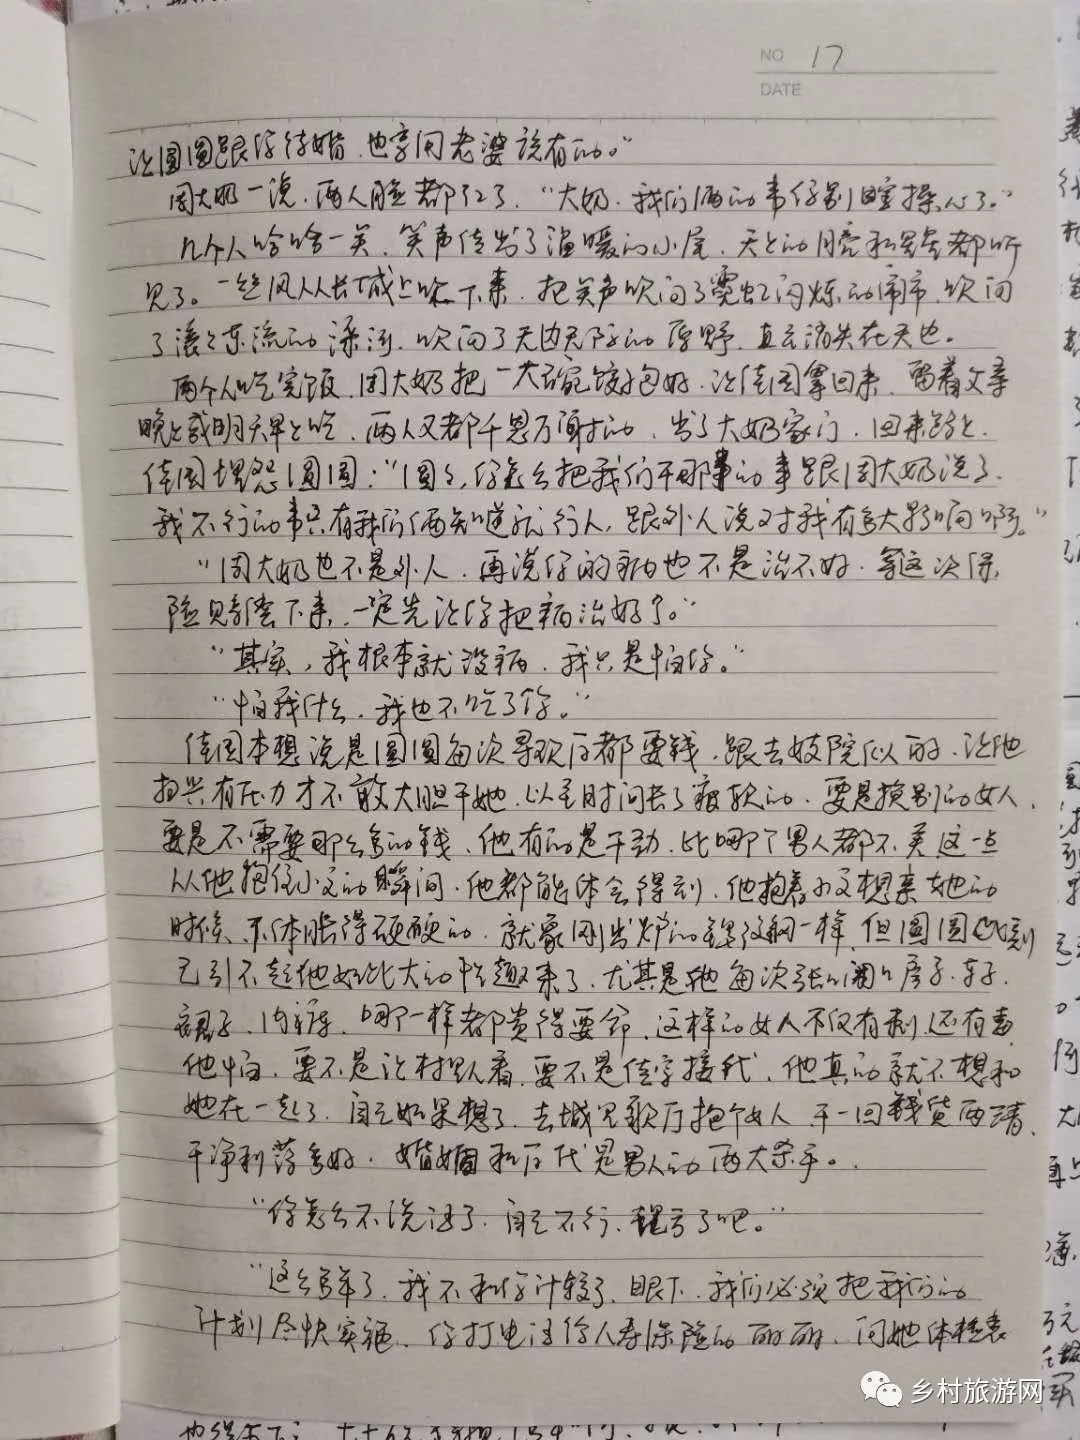 NO 17
DATE
让圆圆跟你结婚,也享用老婆该有的。"
周大奶一说,两人脸都红了,"大奶,我们俩的事你别瞎操心了。"
几个人哈哈一笑,笑声传出了温暖的小屋,天上的月亮和星星都听
见了。一丝风从长城上吹下来,把笑声吹向了霓虹闪烁的闹市,吹向
了滚滚东流的滦河,吹向了无边无际的原野,直至消失在天地。
两个人吃完饭,周大奶把一大碗饺子包好,让佳国拿回来,留着父亲
晚上或明天早上吃,两人又都千恩万谢的,出了大奶家门,回来路上,
佳国埋怨圆圆:"圆圆,你怎么把我们干那事的事跟周大奶说了,
我不行的事只有我们俩知道就行人,跟外人说对我有多大影响啊。"
"周大奶也不是外人,再说你的病也不是治不好,等这次保
险赔偿下来,一定先让你把病治好了。"
"其实,我根本就没病,我只是怕你。"
"怕我什么,我也不吃了你。"
佳国本想说是圆圆每次寻欢后都要钱,跟去妓院似的,让他
扫兴有压力才不敢大胆干她,以至时间长了疲软的,要是换别的女人,
要是不需要那么多的钱,他有的是干劲,比哪个男人都不差这一点
从他抱住小文的瞬间,他都能体会得到,他抱着小文想亲她的
时候,下体胀得硬硬的,就象刚出炉的钢一样,但圆圆此刻
已引不起他如此大的性趣来了,尤其是她每次张口闭口房子、车子、
裙子、内裤,哪一样都贵得要命,这样的女人不仅有刺还有毒,
他怕,要不是让村里人看,要不是传宗接代,他真的就不想和
她在一起了,自己如果想了,去城里歌厅抱个女人,干一回钱货两清,
干净利落多好,婚姻和后代是男人的两大杀手。
"你怎么不说话了,自己不行,理亏了吧。"
"这么多年了,我不和你计较了,眼下,我们必须把我们的
计划尽快实施,你打电话给人寿保险的丽丽,问她体检表
乡村旅游网